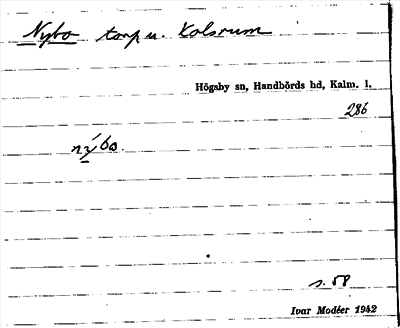 Nybo torp u. Kolsrum
Högsby sn, Handbörds hd, Kalm. l.
286
nýbo.
s. 58
Ivar Modéer 1942